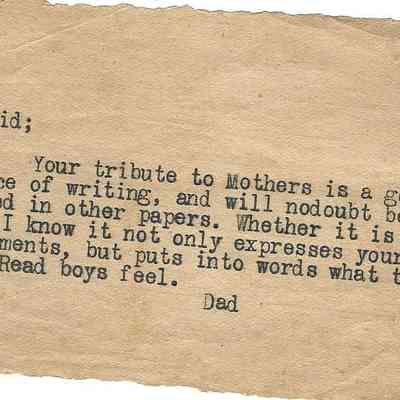 id;
Your tribute to Mothers is a g
ce of writing, and will nodoubt be
d in other papers. Whether it is
I know it not only expresses your
ments, but puts into words what t
Read boys feel.
Dad